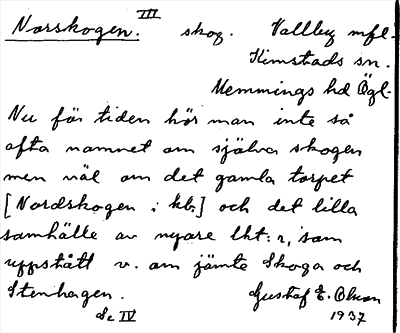 Norskogen. III skog. Vallby mfl.
Kimstads sn.
Memmings hd Ögl.
Nu för tiden hör man inte så
ofta namnet om själva skogen
men väl om det gamla torpet
[Nordskogen i kb.] och det lilla
samhälle av nyare lht:r, som
uppstått v. om jämte Skoga och
Stenhagen. Gustaf E. Olson
Se IV 1937